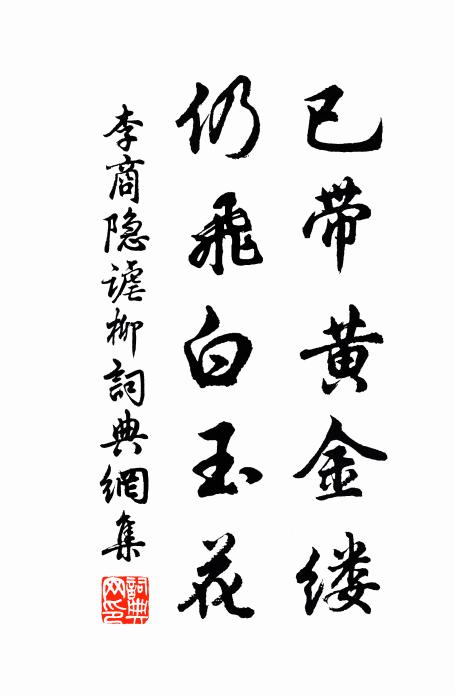 已带黄金缕
仍飞白玉花
李商隐谑柳詞典網集
詞典网印